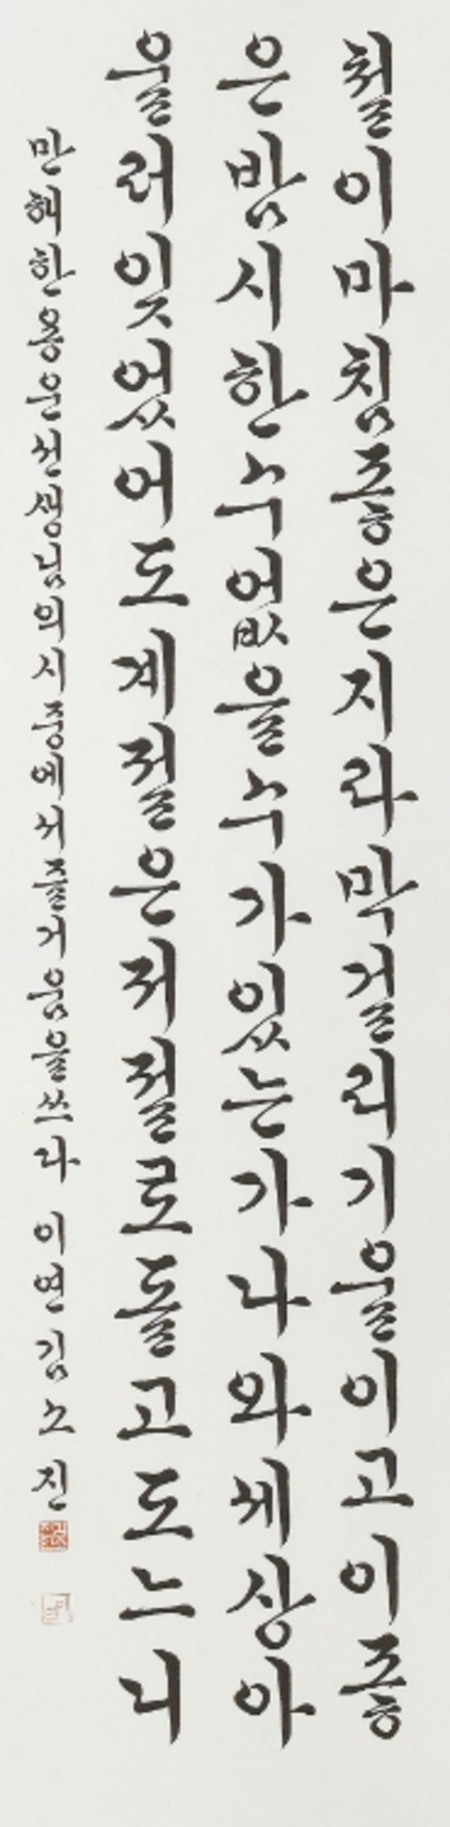 철이마침좋은지라막걸리기울이고이좋
은밤시한수없을수가있는가나와세상아
울러잊었어도계절은저절로돌고도느니
만해한용운선생님의시중에서즐거움을쓰다 이연김소진